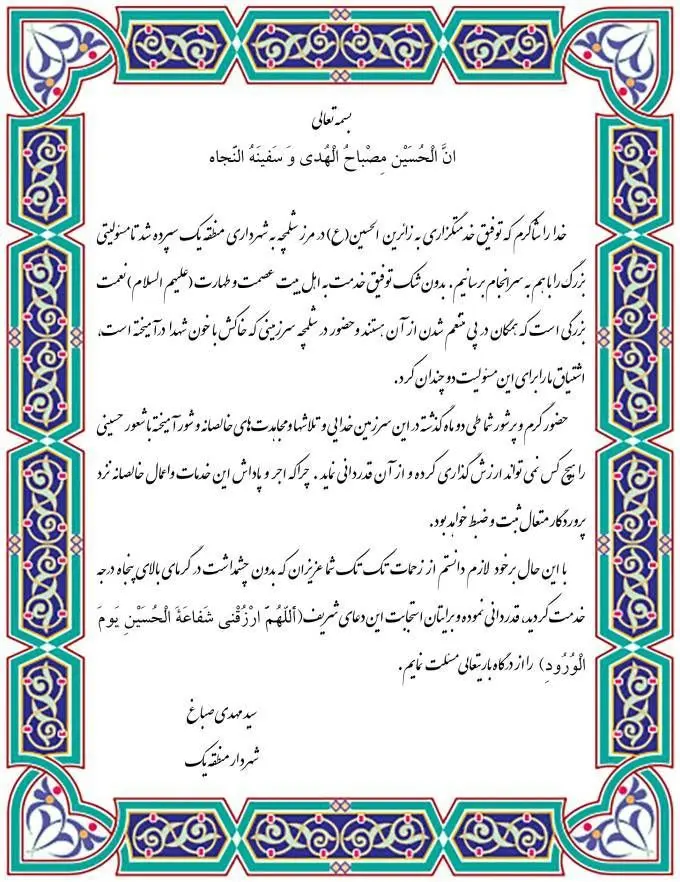 بسمه تعالی
انَّ الْحُسَیْن مِصْباحُ الْهُدی وَ سَفینَهُ النّجاه
خدا را شاکرم که توفیق خدمتگزاری به زائرین الحسین(ع) در مرز شلمچه به شهرداری منطقه یک سپرده شد تا مسئولیتی
بزرگ را باهم به سرانجام برسانیم. بدون شک توفیق خدمت به اهل بیت عصمت و طهارت (علیهم السلام) نعمت
بزرگی است که همگان در پی متنعم شدن از آن هستند و حضور در شلمچه سرزمینی که خاکش با خون شهدا درآمیخته است،
اشتیاق ما را برای این مسئولیت دو چندان کرد.
حضور گرم و پرشور شما طی دو ماه گذشته در این سرزمین خدایی و تلاشها و مجاهدت های خالصانه و شور آمیخته با شعور حسینی
را هیچ کس نمی تواند ارزش گذاری کرده و از آن قدردانی نماید. چراکه اجر و پاداش این خدمات و اعمال خالصانه نزد
پروردگار متعال ثبت و ضبط خواهد بود.
با این حال برخود لازم دانستم از زحمات تک تک شما عزیزان که بدون چشمداشت در گرمای بالای پنجاه درجه
خدمت کردید، قدردانی نموده و برایتان استجابت این دعای شریف(أللّهُمّ ارْزُقْنی شَفاعَةَ الْحُسَیْنِ یَومَ
الْوُرُودِ) را از درگاه باریتعالی مسئلت نمایم.
سید مهدی صباغ
شهردار منطقه یک